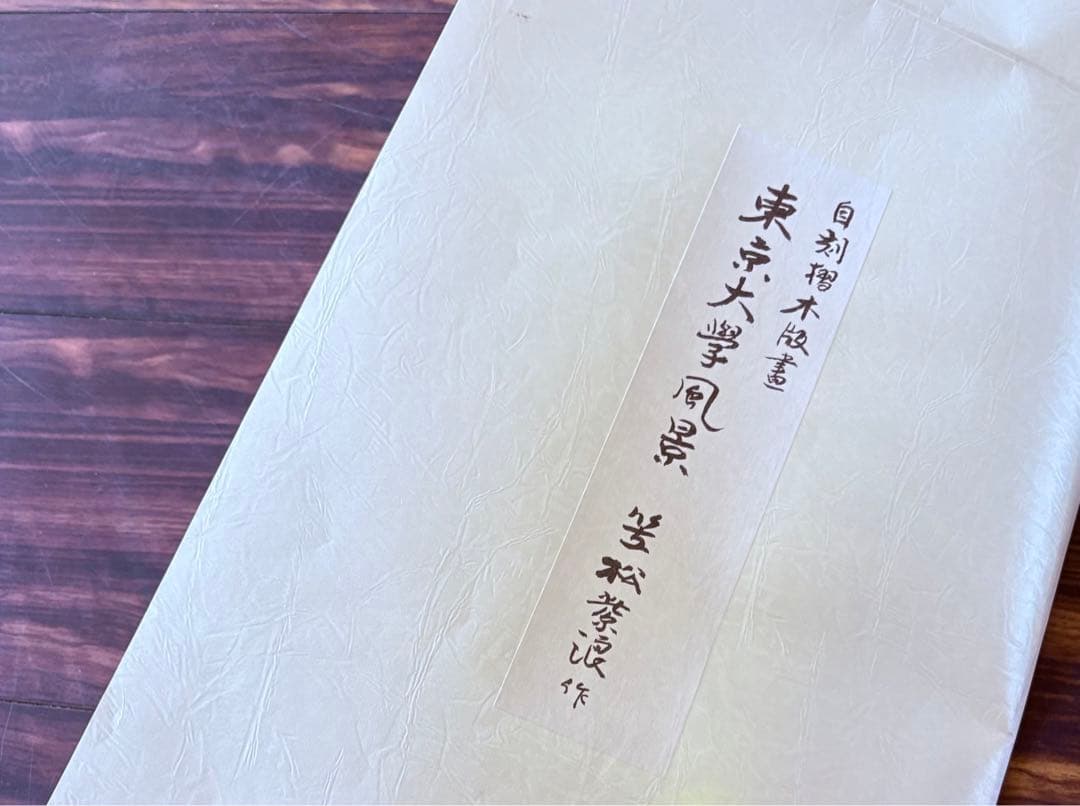 自刻摺木版畫
東京大學風景 笠松紫浪作